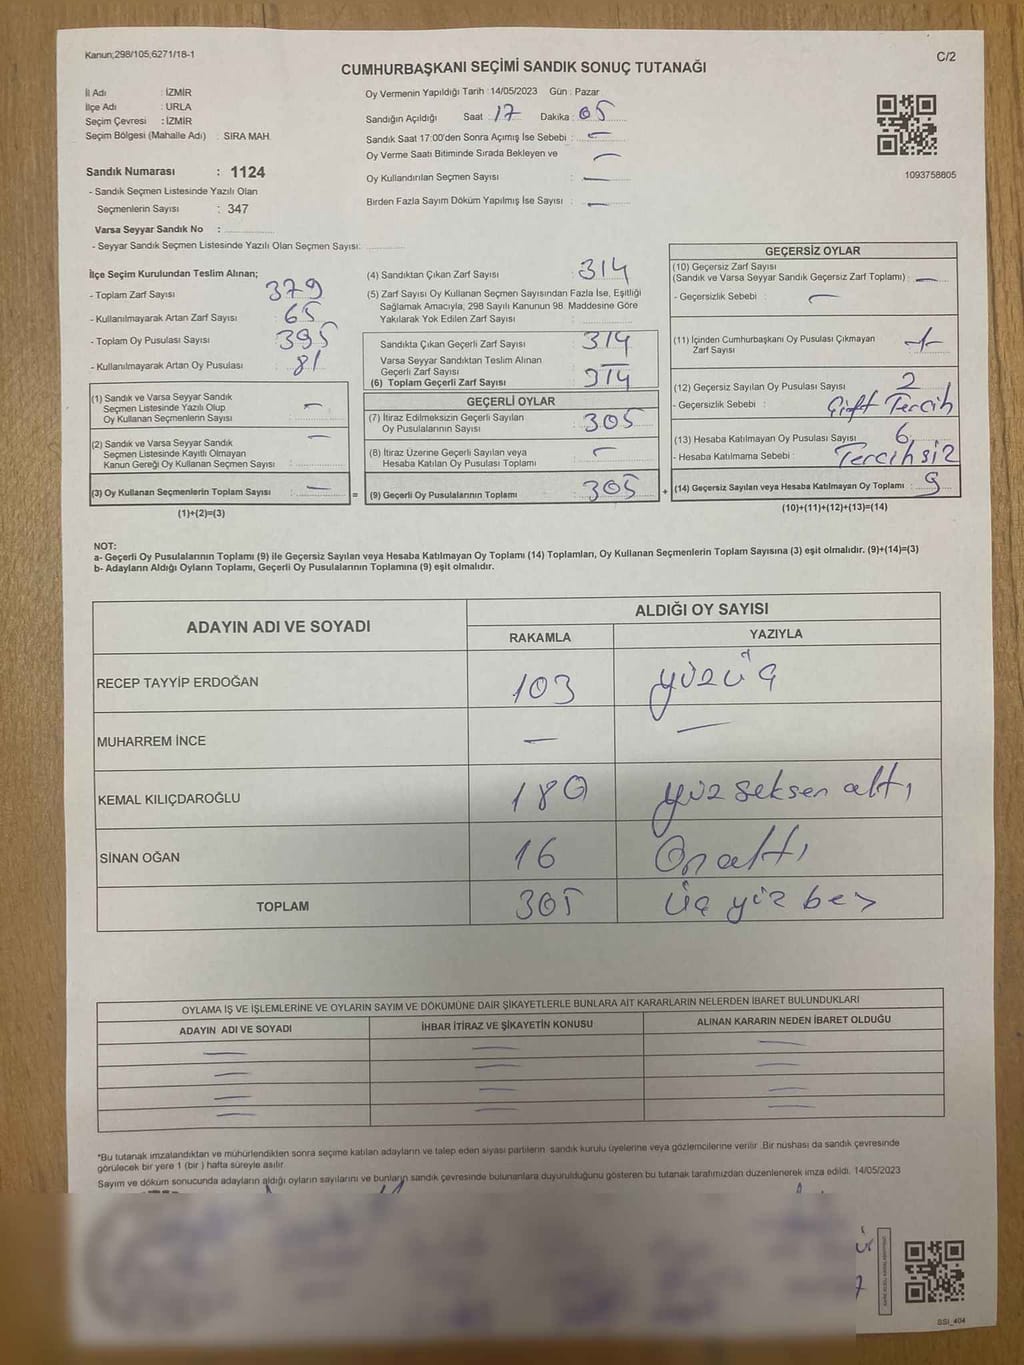 Kanun;298/105,6271/18-1
C/2
CUMHURBAŞKANI SEÇİMİ SANDIK SONUÇ TUTANAĞI
İl Adı : İZMİR
İlçe Adı : URLA
Seçim Çevresi : İZMİR
Seçim Bölgesi (Mahalle Adı) : SIRA MAH.
Oy Vermenin Yapıldığı Tarih : 14/05/2023 Gün : Pazar
Sandığın Açıldığı Saat : 17 Dakika : 05
Sandık Saat 17:00'den Sonra Açımış İse Sebebi : —
Oy Verme Saati Bitiminde Sırada Bekleyen ve —
Oy Kullandırılan Seçmen Sayısı : —
Birden Fazla Sayım Döküm Yapılmış İse Sayısı : —
1093758805
Sandık Numarası : 1124
- Sandık Seçmen Listesinde Yazılı Olan
Seçmenlerin Sayısı : 347
Varsa Seyyar Sandık No :
- Seyyar Sandık Seçmen Listesinde Yazılı Olan Seçmen Sayısı:
İlçe Seçim Kurulundan Teslim Alınan;
- Toplam Zarf Sayısı 379
- Kullanılmayarak Artan Zarf Sayısı 65
- Toplam Oy Pusulası Sayısı 395
- Kullanılmayarak Artan Oy Pusulası 81
(1) Sandık ve Varsa Seyyar Sandık
Seçmen Listesinde Yazılı Olup
Oy Kullanan Seçmenlerin Sayısı : —
(2) Sandık ve Varsa Seyyar Sandık
Seçmen Listesinde Kayıtlı Olmayan
Kanun Gereği Oy Kullanan Seçmen Sayısı : —
(3) Oy Kullanan Seçmenlerin Toplam Sayısı : —
(1)+(2)=(3)
=
(4) Sandıktan Çıkan Zarf Sayısı : 314
(5) Zarf Sayısı Oy Kullanan Seçmen Sayısından Fazla İse, Eşitliği
Sağlamak Amacıyla, 298 Sayılı Kanunun 98. Maddesine Göre
Yakılarak Yok Edilen Zarf Sayısı :
Sandıkta Çıkan Geçerli Zarf Sayısı : 314
Varsa Seyyar Sandıktan Teslim Alınan
Geçerli Zarf Sayısı : —
(6) Toplam Geçerli Zarf Sayısı : 314
GEÇERLİ OYLAR
(7) İtiraz Edilmeksizin Geçerli Sayılan
Oy Pusulalarının Sayısı : 305
(8) İtiraz Üzerine Geçerli Sayılan veya
Hesaba Katılan Oy Pusulası Toplamı : —
(9) Geçerli Oy Pusulalarının Toplamı : 305
+
GEÇERSİZ OYLAR
(10) Geçersiz Zarf Sayısı
(Sandık ve Varsa Seyyar Sandık Geçersiz Zarf Toplamı) : —
- Geçersizlik Sebebi : —
(11) İçinden Cumhurbaşkanı Oy Pusulası Çıkmayan
Zarf Sayısı : 1
(12) Geçersiz Sayılan Oy Pusulası Sayısı : 2
- Geçersizlik Sebebi : Çift Tercih
(13) Hesaba Katılmayan Oy Pusulası Sayısı : 6
- Hesaba Katılmama Sebebi : Tercihsiz
(14) Geçersiz Sayılan veya Hesaba Katılmayan Oy Toplamı : 9
(10)+(11)+(12)+(13)=(14)
NOT:
a- Geçerli Oy Pusulalarının Toplamı (9) ile Geçersiz Sayılan veya Hesaba Katılmayan Oy Toplamı (14) Toplamları, Oy Kullanan Seçmenlerin Toplam Sayısına (3) eşit olmalıdır. (9)+(14)=(3)
b- Adayların Aldığı Oyların Toplamı, Geçerli Oy Pusulalarının Toplamına (9) eşit olmalıdır.
ADAYIN ADI VE SOYADI ALDIĞI OY SAYISI
RAKAMLA YAZIYLA
RECEP TAYYİP ERDOĞAN 103 yüzüç
MUHARREM İNCE — —
KEMAL KILIÇDAROĞLU yüz seksen altı
SİNAN OĞAN 16 On altı
TOPLAM 305 üç yüz beş
OYLAMA İŞ VE İŞLEMLERİNE VE OYLARIN SAYIM VE DÖKÜMÜNE DAİR ŞİKAYETLERLE BUNLARA AİT KARARLARIN NELERDEN İBARET BULUNDUKLARI
ADAYIN ADI VE SOYADI İHBAR İTİRAZ VE ŞİKAYETİN KONUSU ALINAN KARARIN NEDEN İBARET OLDUĞU
— — —
— — —
— — —
— — —
*Bu tutanak imzalandıktan ve mühürlendikten sonra seçime katılan adayların ve talep eden siyasi partilerin sandık kurulu üyelerine veya gözlemcilerine verilir .Bir nüshası da sandık çevresinde
görülecek bir yere 1 (bir ) hafta süreyle asılır.
Sayım ve döküm sonucunda adayların aldığı oyların sayılarını ve bunların sandık çevresinde bulunanlara duyurulduğunu gösteren bu tutanak tarafımızdan düzenlenerek imza edildi. 14/05/2023
SSI_404